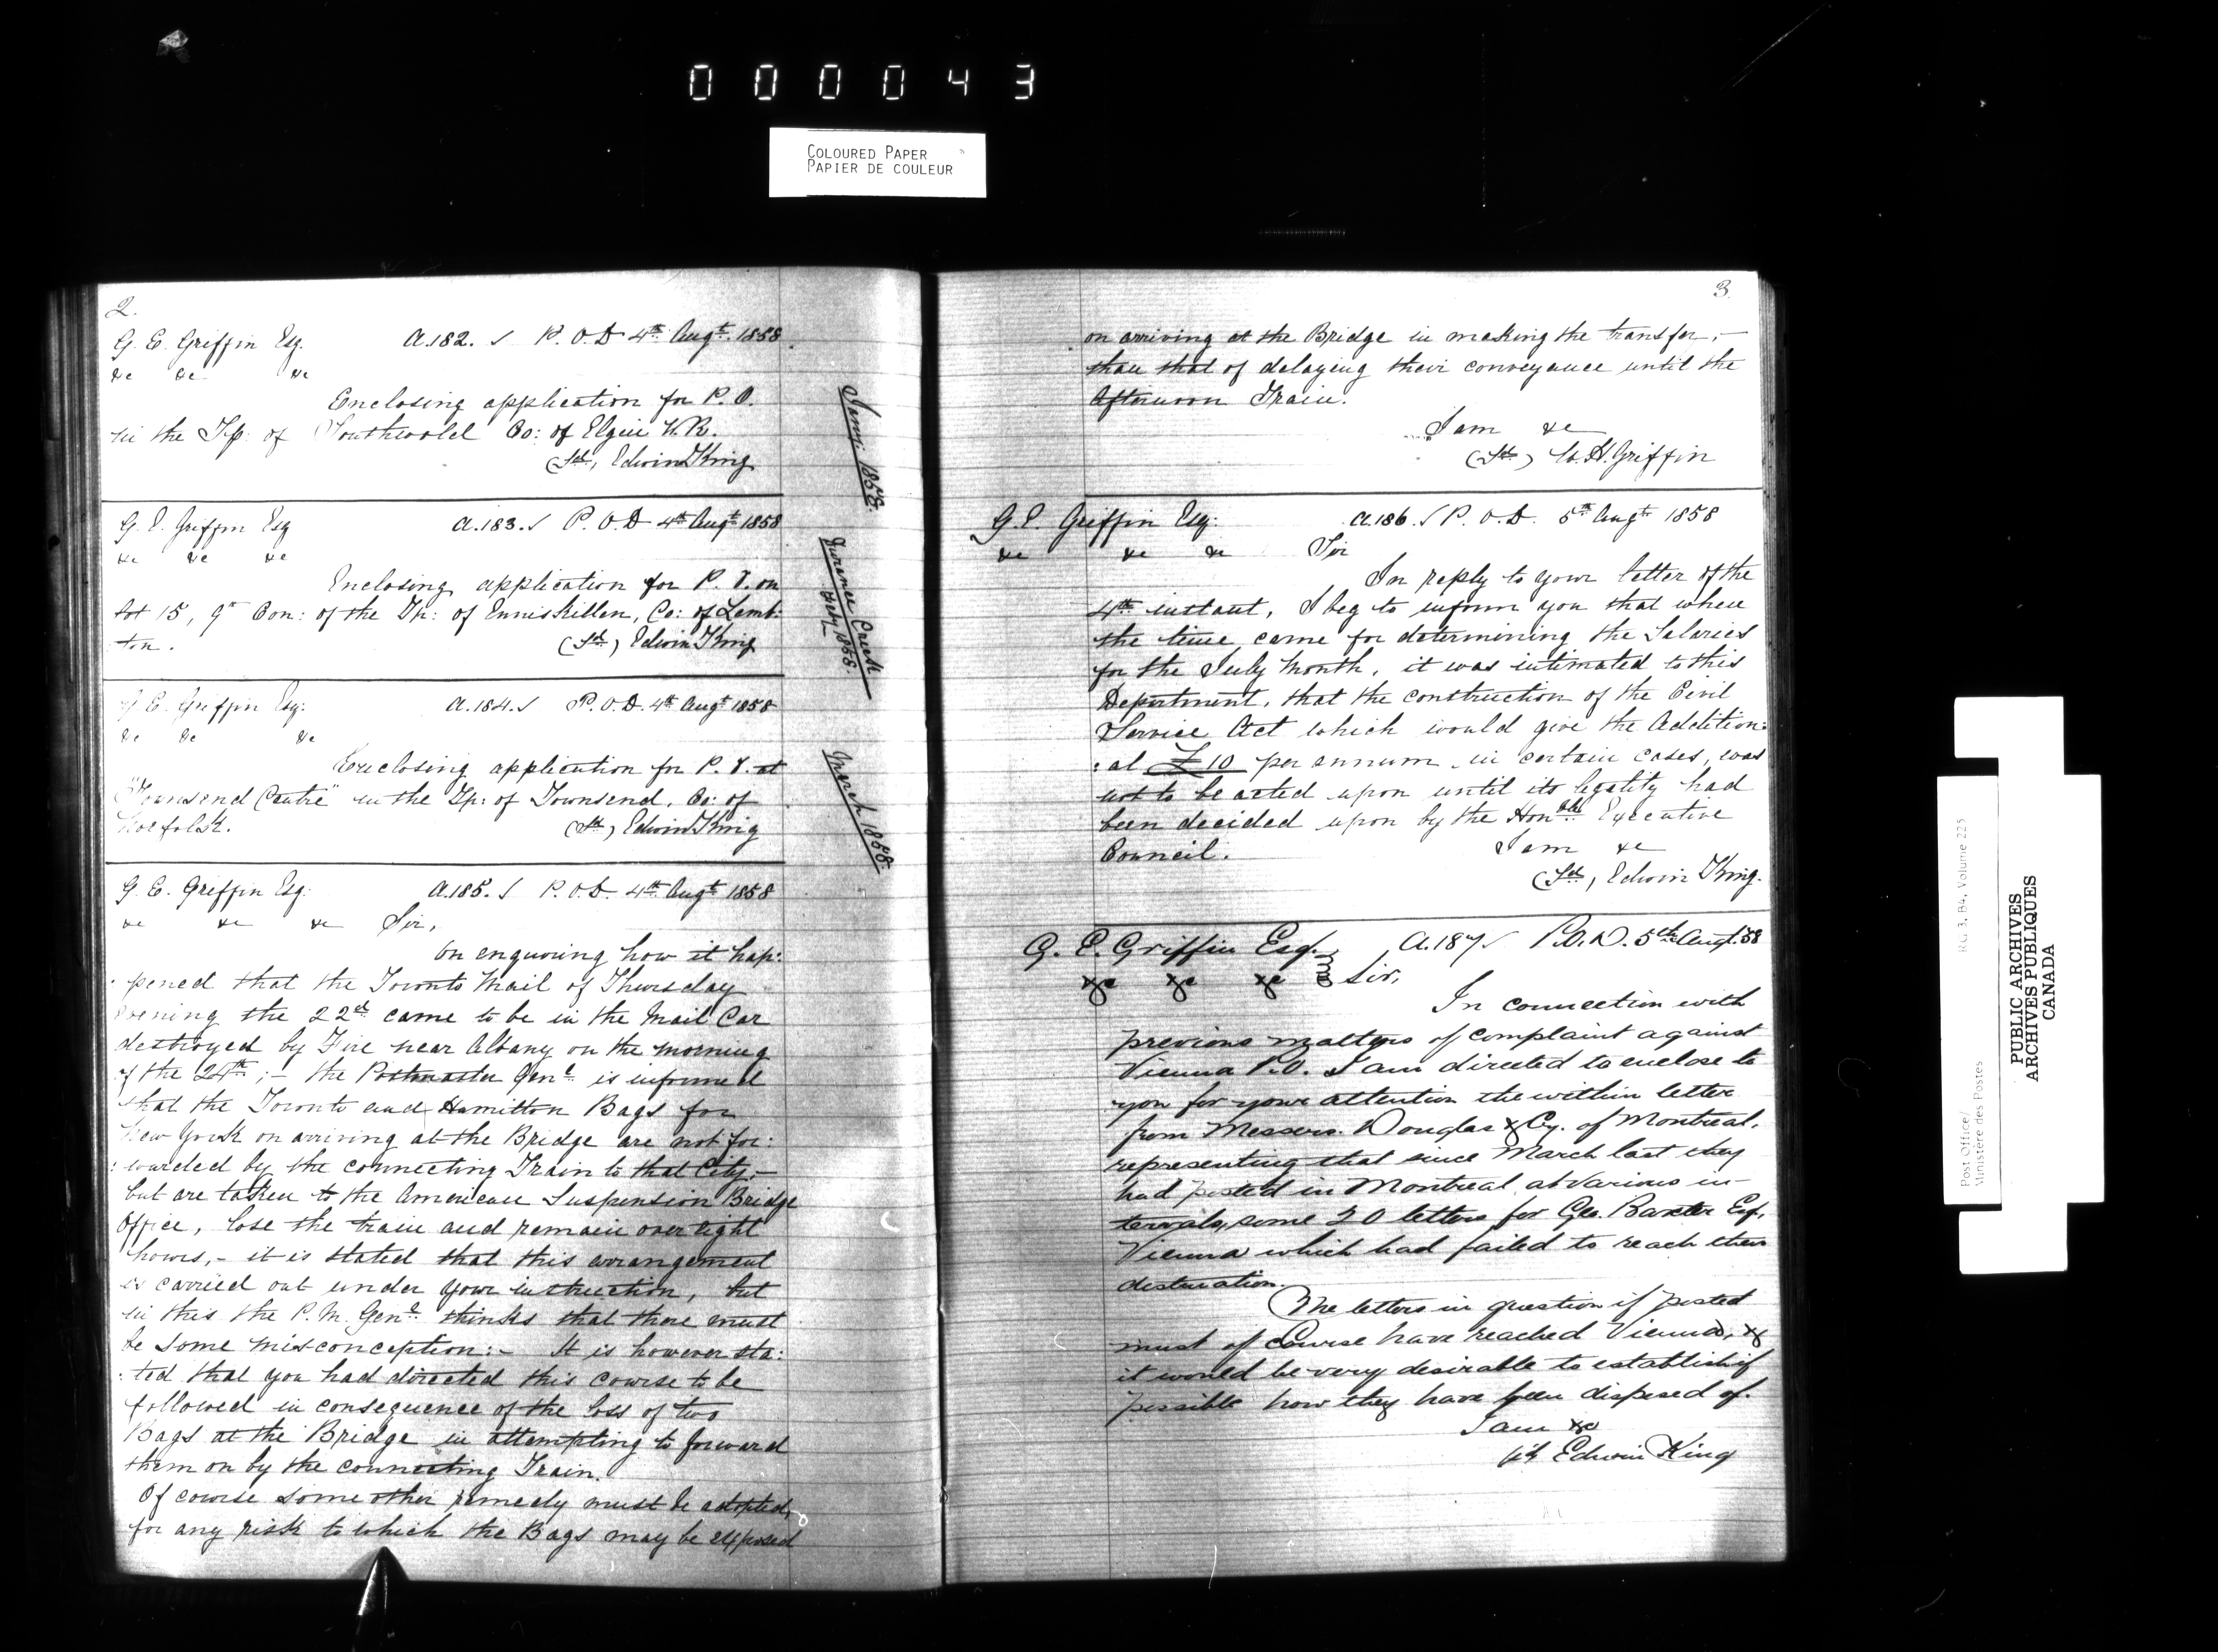 000043
COLOURED PAPER
PAPIER DE COULEUR
2.
G. E. Griffin Esq. A.182. ✓ P. O. D 4th Augt. 1858.
&c &c &c
Enclosing application for P. O.
in the Tp: of Southwold Co: of Elgin W. R.
(Sd), Edwin King
G. E. Griffin Esq A.183. ✓ P. O. D 4th Augt 1858
&c &c &c
Enclosing application for P. O. on
Lot 15, 9th Con: of the Tp: of Enniskillen, Co: of Lamb:
ton.
(Sd), Edwin King
G E. Griffin Esq: A.184. ✓ P. O. D. 4th Augt 1858
&c &c &c
Enclosing application for P. O. at
"Townsend Centre" in the Tp: of Townsend, Co: of
Norfolk.
(Sd), Edwin King
G. E. Griffin Esq: A.185. ✓ P. O. D. 4th Augt 1858
&c &c &c Sir,
On enquiring how it hap:
:pened that the Toronto Mail of Thursday
evening the 22d came to be in the Mail Car
destroyed by Fire near Albany on the morning
of the 24th; - the Postmaster Genl is informed
that the Toronto and Hamilton Bags for
New York on arriving at the Bridge are not for:
:warded by the connecting Train to that City, -
but are taken to the American Suspension Bridge
Office, lose the train and remain over eight
hours, - it is stated that this arrangement
is carried out under your instruction, but
in this the P. M. Genl thinks that there must
be some misconception: - It is however sta:
:ted that you had directed this course to be
followed in consequence of the loss of two
Bags at the Bridge in attempting to forward
them on by the connecting Train.
Of course some other remedy must be adopted,
for any risk to which the Bags may be exposed
1858.
Creek
Feby 1858.
March 1858.
3.
on arriving at the Bridge in making the transfer, -
than that of delaying their conveyance until the
Afternoon Train.
I am &c
(Sd) W. H. Griffin
G. E. Griffin Esq: A.186. ✓ P. O. D. 5th Augt 1858
&c &c &c Sir
In reply to your letter of the
4th instant, I beg to inform you that when
the time came for determining the Salaries
for the July Month, it was intimated to this
Department, that the construction of the Civil
Service Act which would give the Addition:
:al £10 per annum in certain cases, was
not to be acted upon until its legality had
been decided upon by the Honble Executive
Council.
I am &c
(Sd), Edwin King.
G. E. Griffin Esq. A.187 ✓ P.O.D. 5th Augt. 58
&c &c &c Sir,
In connection with
previous matters of complaint against
Vienna P.O. I am directed to enclose to
you for your attention the within letter
from Messers. Douglas & Cy. of Montreal,
representing that since March last they
had posted in Montreal at various in-
tervals, some 20 letters for Geo. Baxter Esq,
Vienna which had failed to reach their
destination.
The letters in question if posted
must of Course have reached Vienna, &
it would be very desirable to establish if
possible how they have been disposed of.
I am &c
Sd Edwin King
RG 3, B4, Volume 225
Post Office/
Ministère des Postes
PUBLIC ARCHIVES
ARCHIVES PUBLIQUES
CANADA